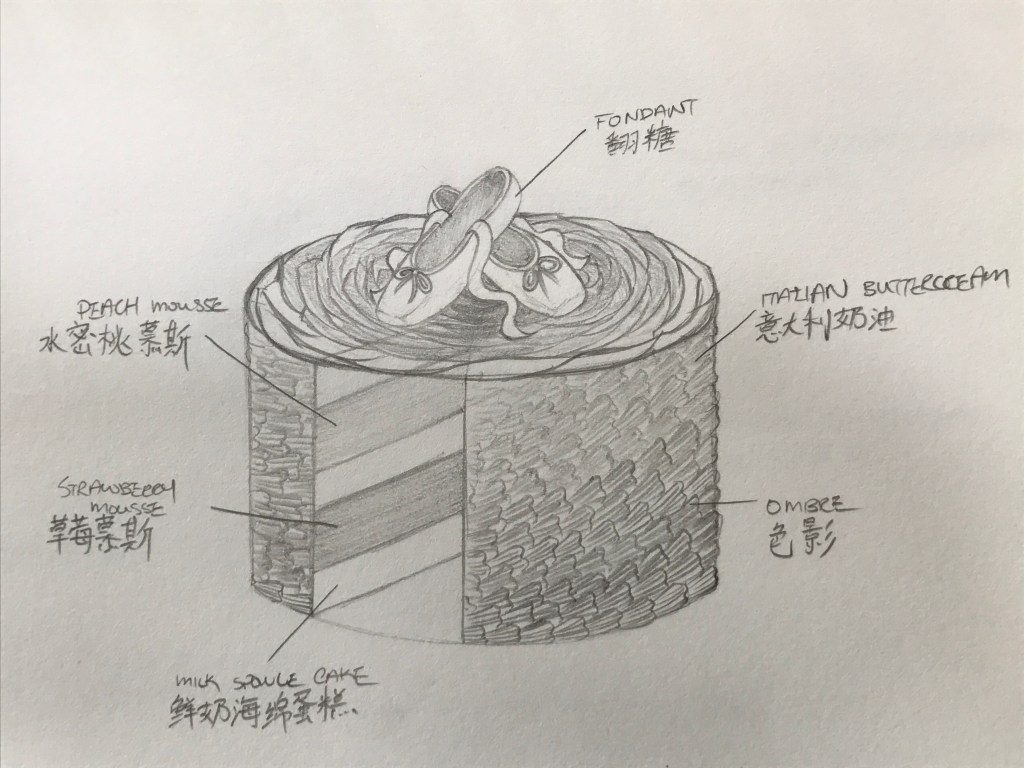 FONDANT
翻糖
PEACH MOUSSE
水密桃慕斯
ITALIAN BUTTERCREAM
意大利奶油
STRAWBERRY
MOUSSE
草莓慕斯
OMBRE
色影
MILK SPONGE CAKE
鲜奶海绵蛋糕